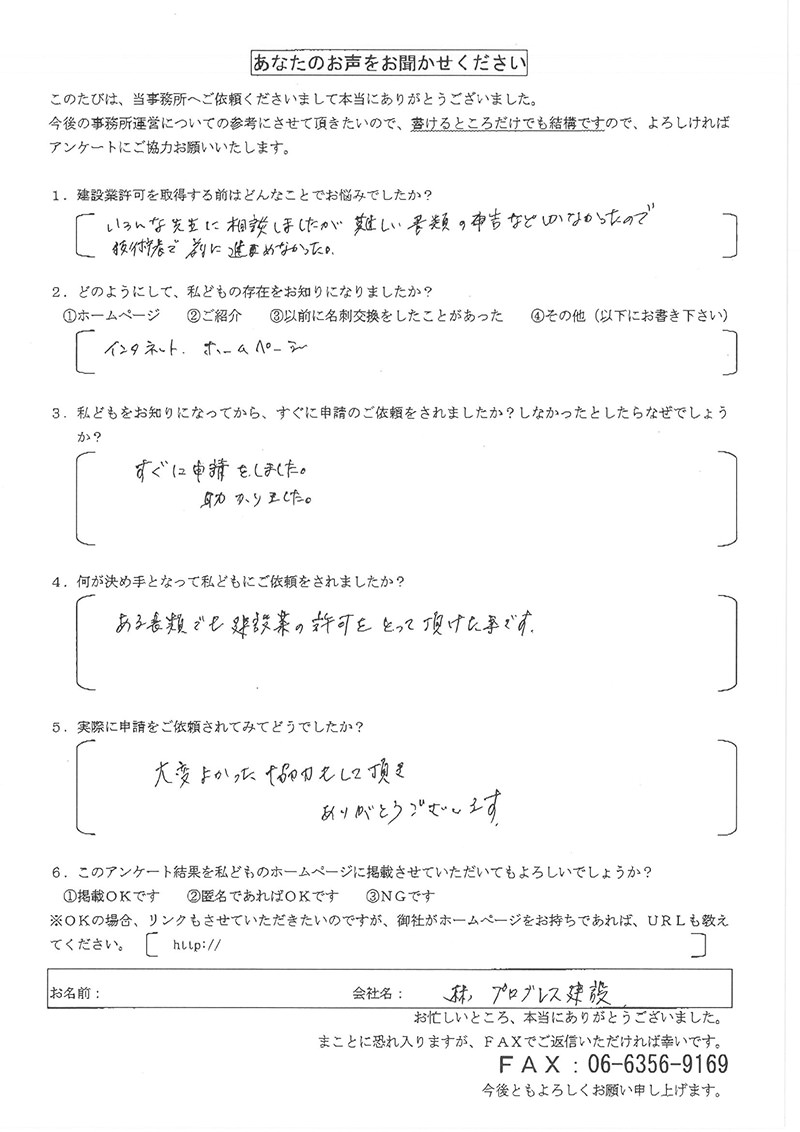 あなたのお声をお聞かせください
このたびは、当事務所へご依頼くださいまして本当にありがとうございました。
今後の事務所運営についての参考にさせて頂きたいので、書けるところだけでも結構ですので、よろしければ
アンケートにご協力お願いいたします。
１．建設業許可を取得する前はどんなことでお悩みでしたか？
いろんな先生に相談しましたが難しい書類の申告など
前に進まめなかった。
２．どのようにして、私どもの存在をお知りになりましたか？
①ホームページ　②ご紹介　③以前に名刺交換をしたことがあった　④その他（以下にお書き下さい）
インタネット．ホームページ
３．私どもをお知りになってから、すぐに申請のご依頼をされましたか？しなかったとしたらなぜでしょう
か？
すぐに申請をしました。
助かりました。
４．何が決め手となって私どもにご依頼をされましたか？
ある書類でも建設業の許可をとって頂けた事です。
５．実際に申請をご依頼されてみてどうでしたか？
大変よかった協力をして頂き
ありがとうございます。
６．このアンケート結果を私どものホームページに掲載させていただいてもよろしいでしょうか？
①掲載ＯＫです　②匿名であればＯＫです　③ＮＧです
※ＯＫの場合、リンクもさせていただきたいのですが、御社がホームページをお持ちであれば、ＵＲＬも教え
てください。　http://
お名前：　会社名：　㈱プログレス建設
お忙しいところ、本当にありがとうございました。
まことに恐れ入りますが、ＦＡＸでご返信いただければ幸いです。
ＦＡＸ：06-6356-9169
今後ともよろしくお願い申し上げます。